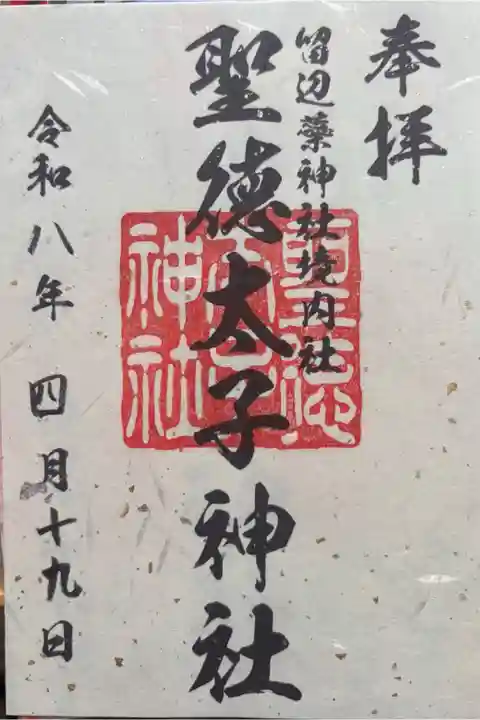 奉拝
留辺蘂神社境内社
聖徳太子神社
聖徳太子神社
令和八年 四月十九日